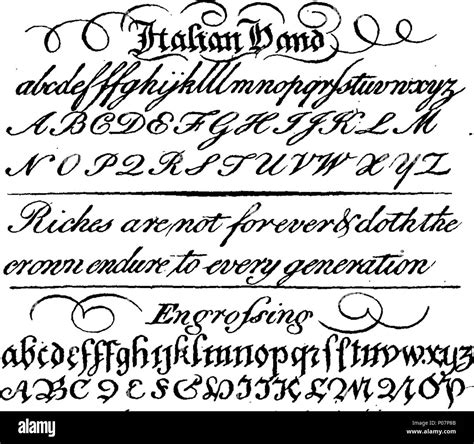 Italian Hand
abcdefffghijklllmnopqrſstuvwxyz
ABCDEFGHIJKLM
NOPQRSTUVWXYZ
Riches are not forever & doth the
crown endure to every generation
Engroſsing
abcdefffghijklmnopqrſstuvwxyz
ABCDEFGHIJKLMNOP
alamy
Image ID: P07P8B
www.alamy.com